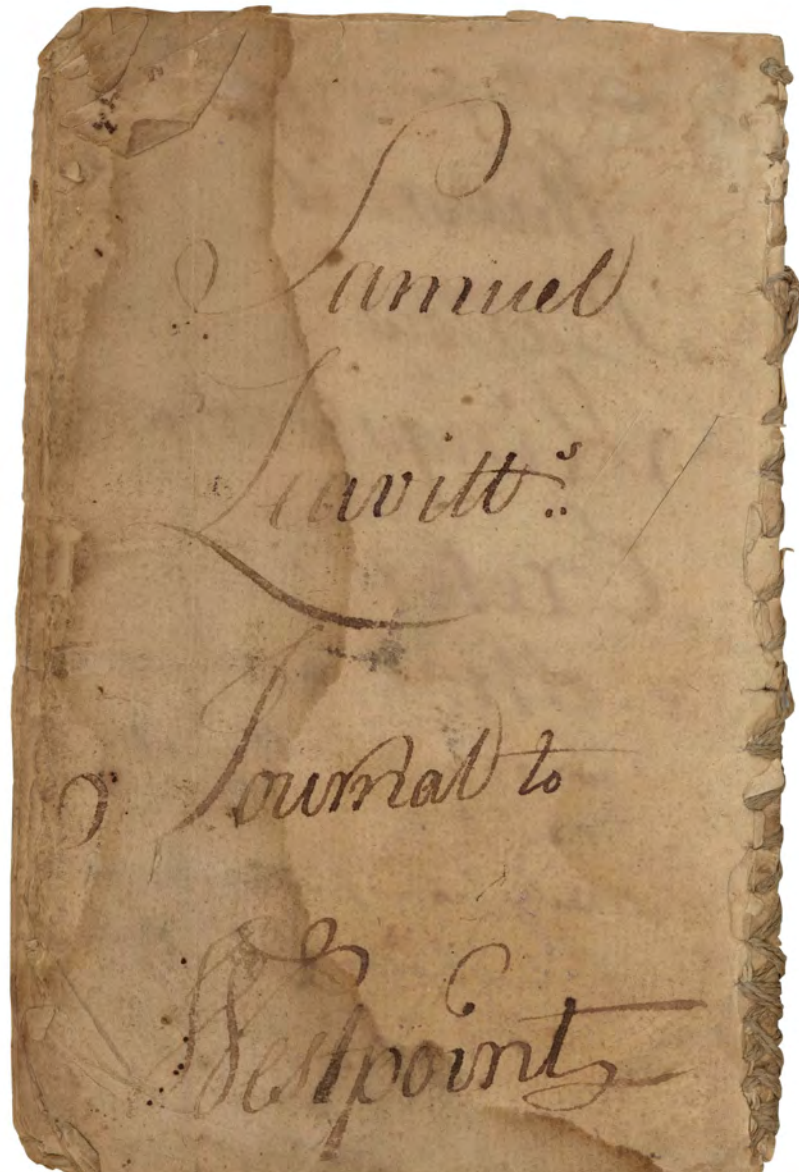 Samuel
Leavitt.s
Journal to
Westpoint